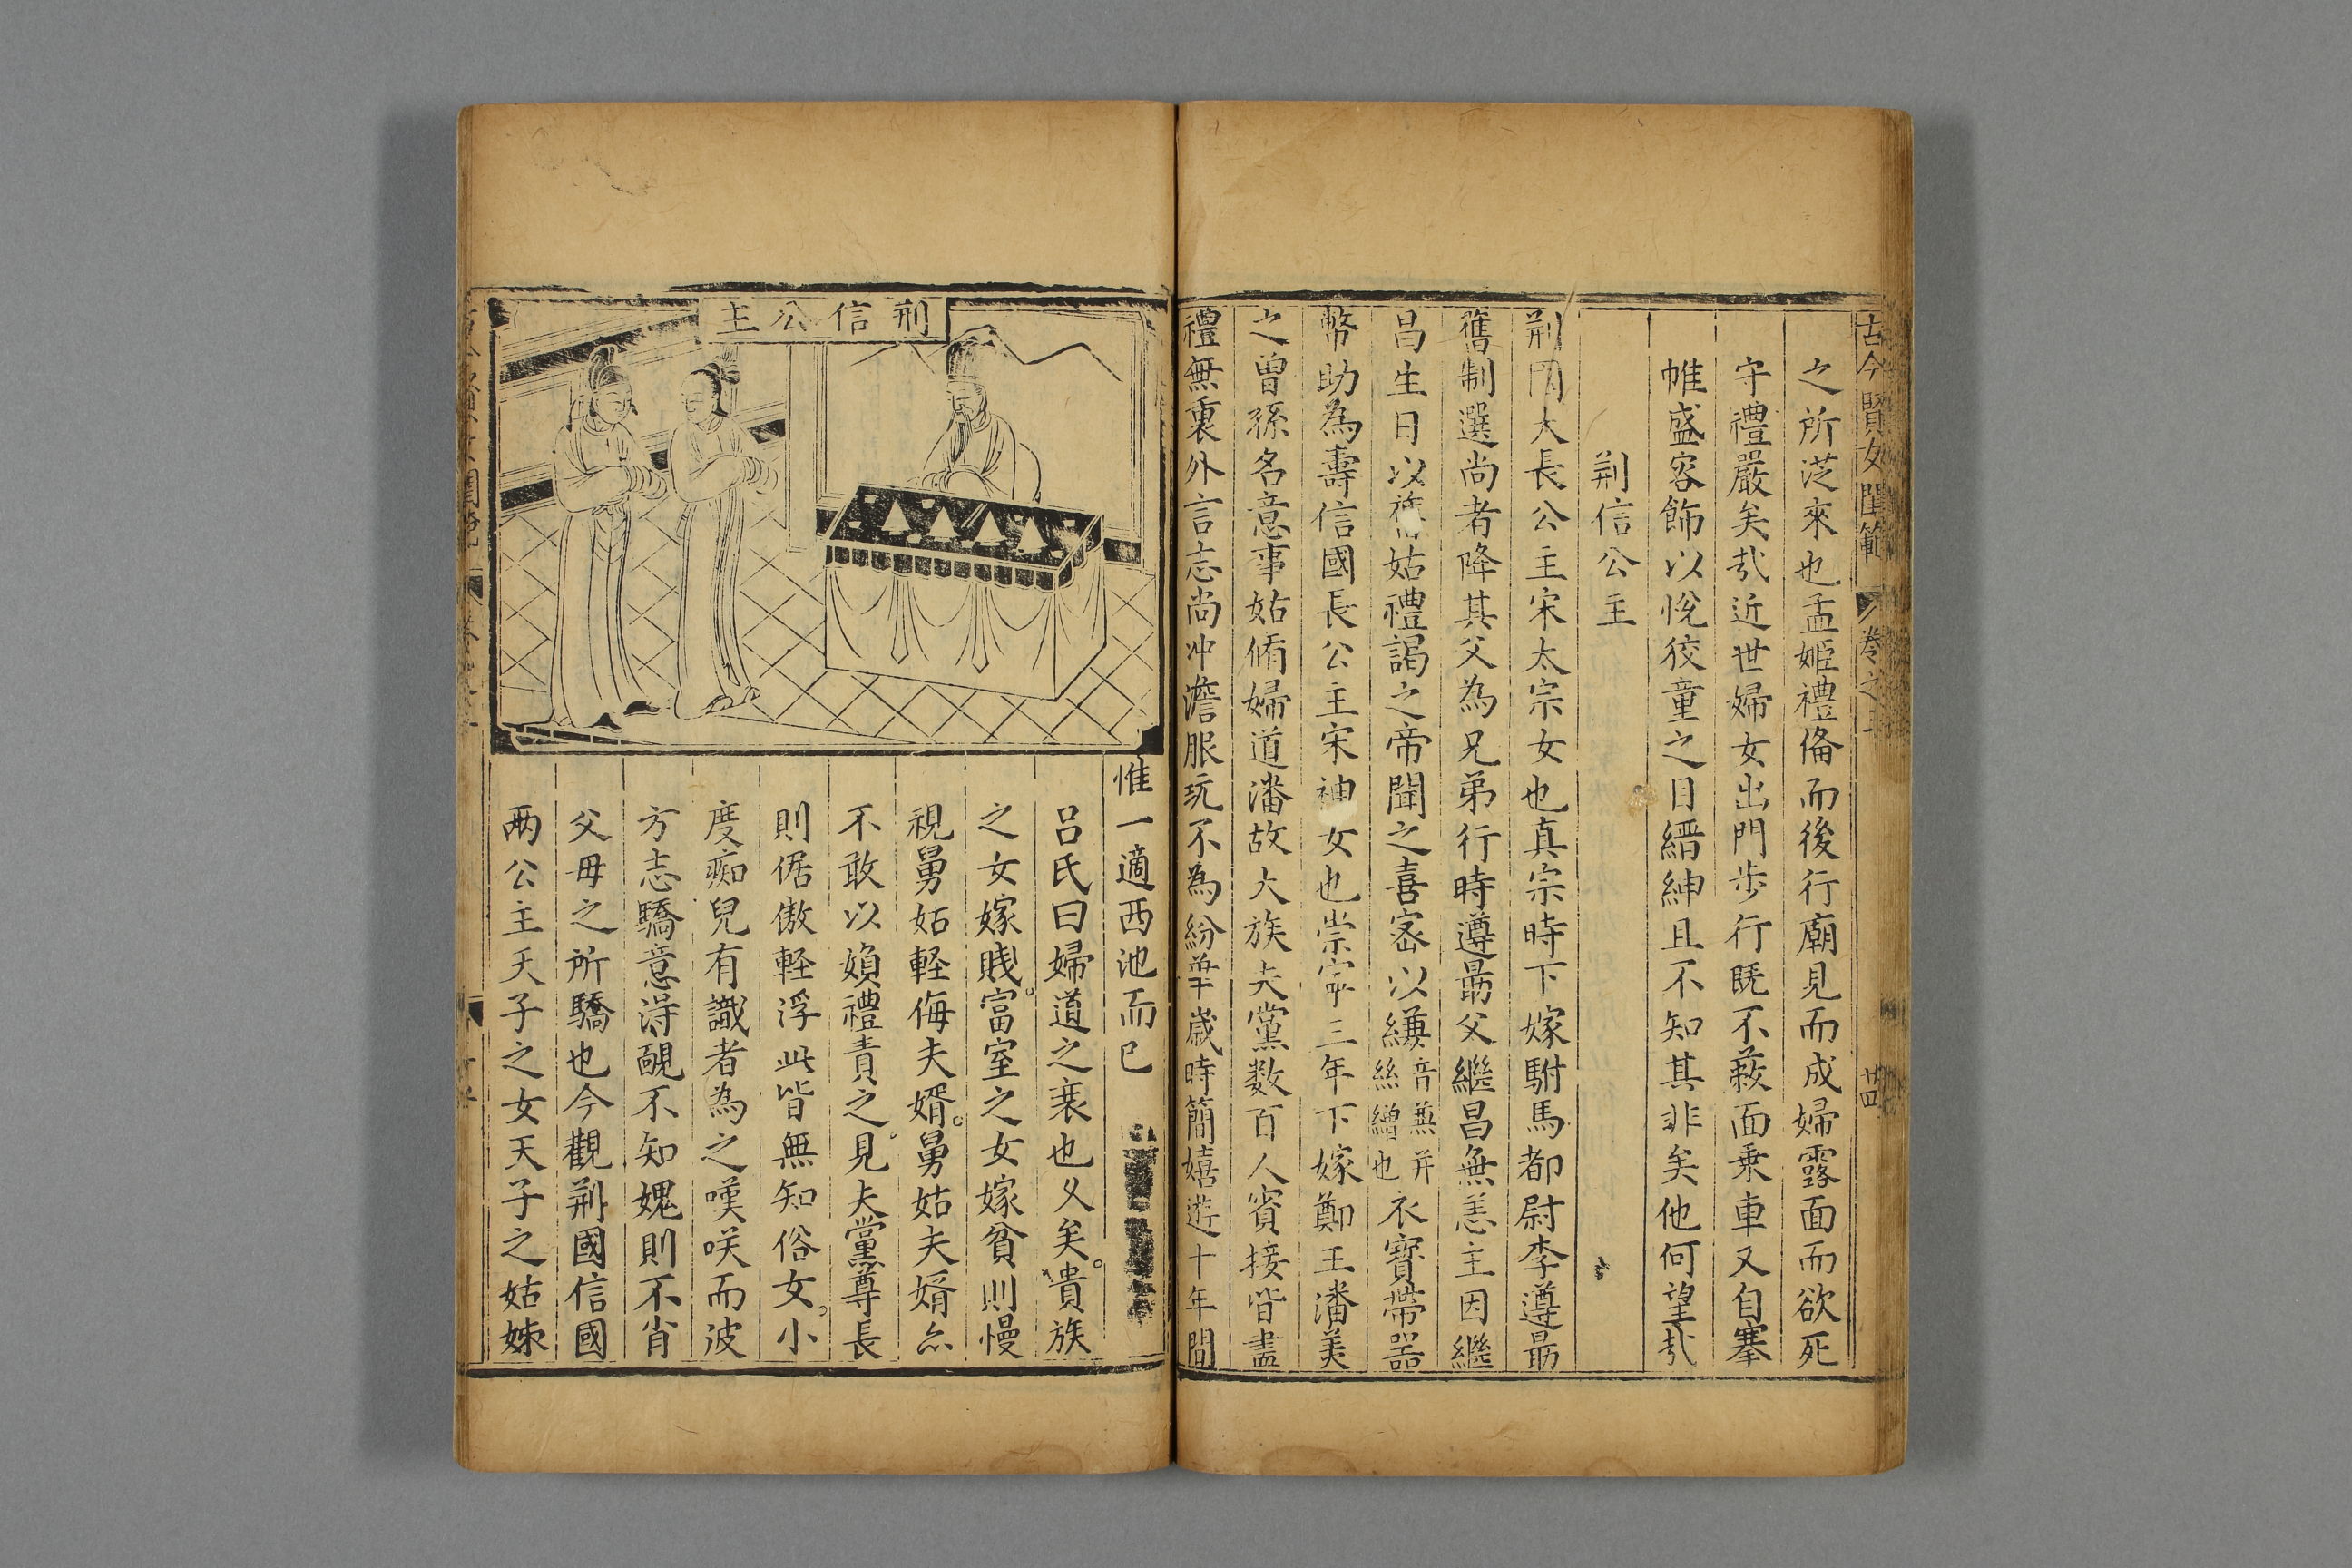 古今賢女閨範 卷之三 廿四
之所從來也孟姬禮俻而後行廟見而成婦露面而欲死
守禮嚴矣㢤近世婦女出門步行旣不蔽面乗車又自搴
帷盛容飾以悅狡童之目縉紳且不知其非矣他何望㢤
荊信公主
荊國大長公主宋太宗女也真宗時下嫁駙馬都尉李遵勗
舊制選尚者降其父為兄弟行時遵勗父繼昌無恙主因繼
昌生日以舊姑禮謁之帝聞之喜宻以縑音蒹并絲繒也衣寳帶器
幣助為壽信國長公主宋神女也崇寧三年下嫁鄭王潘美
之曾孫名意事姑脩婦道潘故大族夫黨数百人賓接皆盡
禮無裏外言志尚冲澹服玩不為紛華歲時簡嬉遊十年間
荊信公主
惟一適西池而已
呂氏曰婦道之衰也乆矣貴族
之女嫁賎富室之女嫁貧則慢
視舅姑軽侮夫婿舅姑夫婿亦
不敢以婦禮責之見夫黨尊長
則倨傲軽浮此皆無知俗女小
度痴兒有識者為之嘆咲而波
方志驕意淂靦不知媿則不肖
父母之所驕也今觀荊國信國
两公主天子之女天子之姑姊